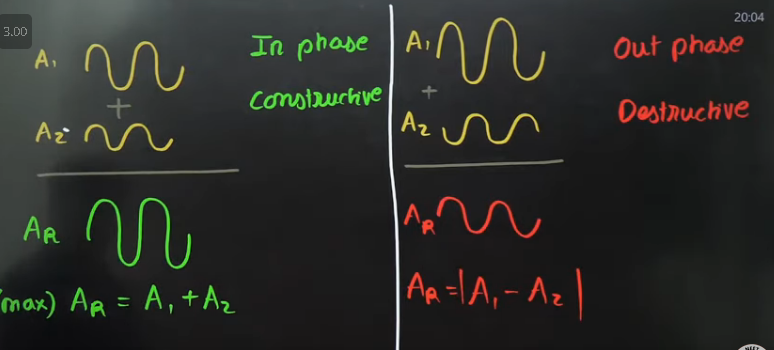 3.00
20:04
A₁
In phase
+
Constructive
A₂
A_R
(max) A_R = A₁ + A₂
A₁
Out phase
+
Destructive
A₂
A_R
A_R = |A₁ - A₂|